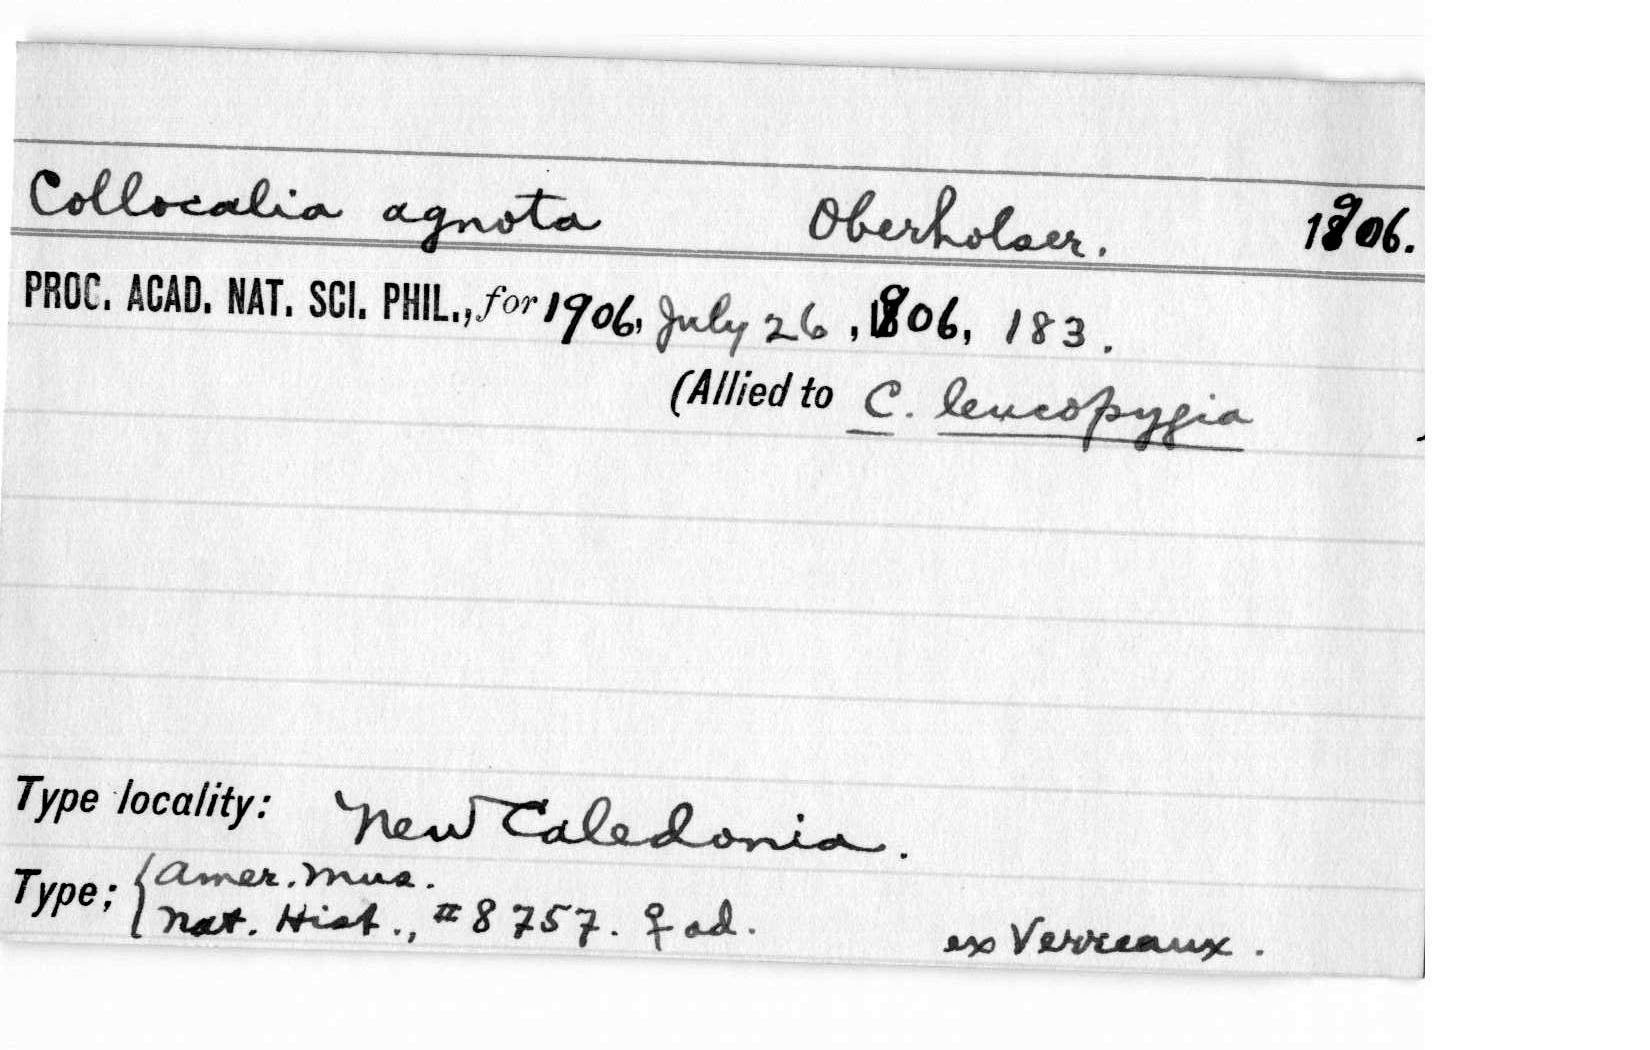 Collocalia agnota Oberholser. 1906.
PROC. ACAD. NAT. SCI. PHIL., for 1906, July 26, 1906, 183.
(Allied to C. leucopygia )
Type locality: New Caledonia.
Type; { Amer. Mus.
Nat. Hist., #8757. ♀ ad. ex Verreaux.